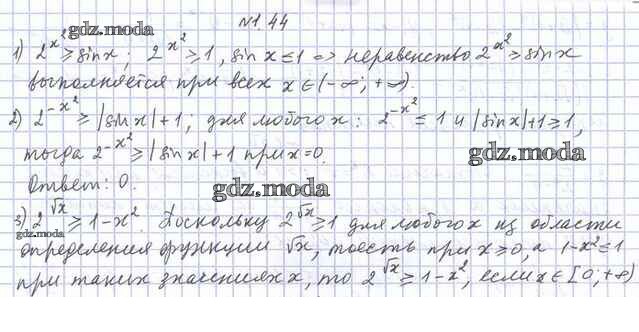 №1.44
gdz.moda
1) 2^{x^2} ≥ sinx; 2^{x^2} ≥ 1, sin x ≤ 1 => неравенство 2^{x^2} ≥ sin x
выполняется при всех x ∈ (-∞; +∞).
2) 2^{-x^2} ≥ |sin x| + 1; для любого x: 2^{-x^2} ≤ 1 и |sin x| + 1 ≥ 1,
тогда 2^{-x^2} ≥ |sin x| + 1 при x = 0.
gdz.moda
Ответ: 0.
gdz.moda
3) 2^{√x} ≥ 1 - x^2. Поскольку 2^{√x} ≥ 1 для любого x из области
gdz.moda
определения функции √x, тоесть при x ≥ 0, а 1 - x^2 ≤ 1
при таких значениях x, то 2^{√x} ≥ 1 - x^2, если x ∈ [0; +∞)